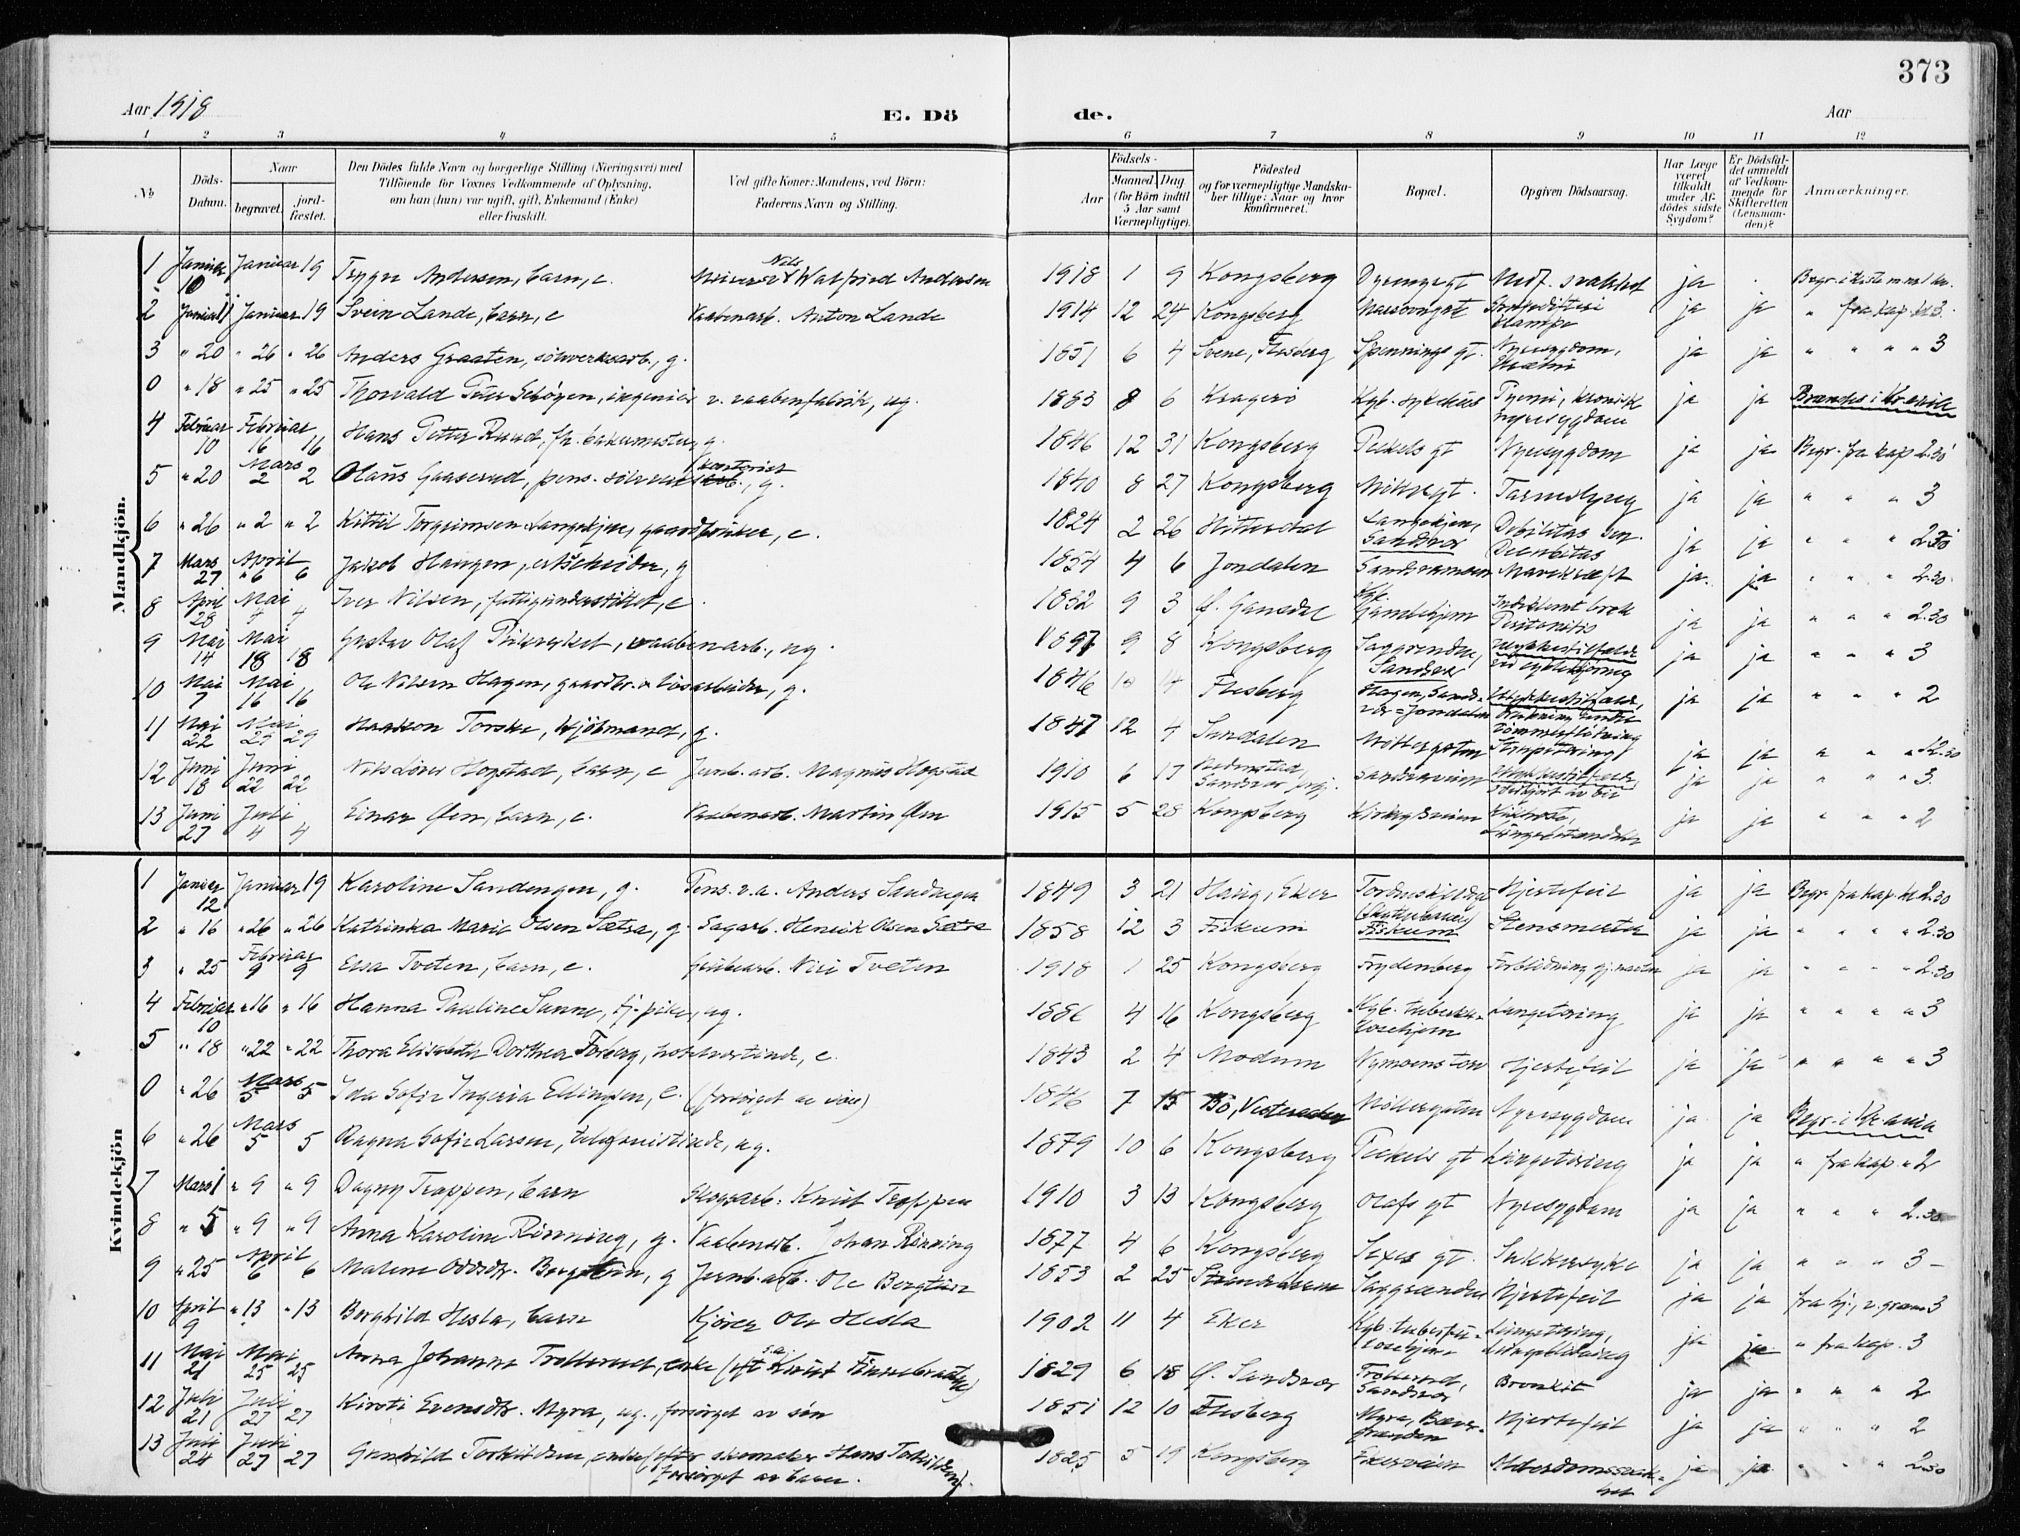 373
Aar 1918
E. Dö
de.
Aar
1 2 3 4 5 6 7 8 9 10 11 12
No
Döds-Datum.
Naar
begravet.
jordfæstet.
Den Dödes fulde Navn og borgerlige Stilling (Næringsvei) med
Tilföiende for Voxnes Vedkommende af Oplysning,
om han (hun) var ugift, gift, Enkemand (Enke)
eller fraskilt.
Ved gifte Koner: Mandens, ved Börn:
Faderens Navn og Stilling.
Födsels-
Aar
Maaned. Dag.
(for Börn indtil
5 Aar samt
Værnepligtige).
Födested
og for værnepligtige Mandska-
ber tillige: Naar og hvor
Konfirmeret.
Bopæl.
Opgiven Dödsaarsag.
Har Læge
været
tilkaldt
under Af-
dödes sidste
Sygdom?
Er Dödsfal-
det anmeldt
af Vedkom-
mende for
Skifteretten
(Lensman-
den)?
Anmærkninger.
Mandkjön.
1 Januar 10 Januar 19 Trygve Andersen, barn, e. Nils Walfrid Andersen 1918 1 9 Kongsberg Medf. svakhet ja
2 Januar 11 Januar 19 Svein Lande, barn, e Vaabenarb. Anton Lande 1914 12 24 Kongsberg ja ja " fra kap. kl 3.
3 " 20 " 26 " 26 Anders Graaten, sølvverksarb., g. 1851 6 4 Svene, Flesberg Spennings gt. Nyresygdom, ja ja " " " " 3
0 " 18 " 25 " 25 Thorvald Schøyen, ingeniør v. vaabenfabrik, ug. 1883 8 6 Kragerø Kgb. sykehus kronisk nyresygdom ja ja Brændes i Kr.ania
4 Februar 10 Februar 16 16 Hans Petter Ruud, fh. bakermester, g. 1846 12 31 Kongsberg Peckels gt Nyresygdom ja ja Begr. fra kap 2.30
5 " 20 Mars 2 2 Olaus Gaaserud, pens. sølvverks, g. 1840 8 27 Kongsberg Tarmslyng ja ja " " " 3
6 " 26 " 2 " 2 Kittil Torgrimsen Langekjen, gaardbruker, e. 1824 2 26 Hitterdal Langekjen, Sandsvær Debilitas sen. Decubitus ja ja " " " 2.30
7 Mars 27 April 6 6 Jakob Haugen, arbeider, g 1854 4 6 Jondalen Sandsveien Marvkræft ja. ja " " " 2.30.
8 April 28 Mai 4 4 Iver Nilsen, fattigunderstøttet, e. 1832 9 3 Ø. Gamlehjem Indeklemt brok Peritonitis ja ja " " " 2.30
9 Mai 14 Mai 18 18 Gustav Olaf, vaabenarb., ug. 1897 9 8 Kongsberg Saggrenda, Sandsvær Ulykkestilfælde ved sykkelkjøring ja ja " " " 3
10 Mai 7 Mai 16 16 Ole Nilsen Hagen, gaardbr. & løsarbeider, g. 1846 14 Flesberg Hagen, Sandsvær - Jondalen Ulykkestilfælde, Drukning under Tømmerfløtning ja ja " " " 2
11 Mai 22 Mai 29 29 Haakon Torske, kjøbmand, g. 1847 12 4 Sundalen Møllergaten Strupetæring ja ja " " " 12.30
12 Juni 18 Juni 22 22 Hogstad, barn, e Jernb. arb. Magnus Hogstad 1910 6 17 Sandsvær Sandsveien Ulykkestilfælde, Overkjørt av bil ja ja " " " 3.
13 Juni 27 Juli 4 4 Einar Øen, barn, e. Vaabenarb. Martin Øen 1915 5 28 Kongsberg Kikhoste, Lungebetændelse ja ja " " " 2
Kvindekjön
1 Januar 12 Januar 19 Karoline Sandengen, g. Pens. v.a. Anders Sandengen 1849 3 21 Haug, Eker Hjertefeil ja ja Begr. fra kap. kl 2.30
2 " 16 " 26 " 26 Kathinka Marie Olsen Sætra, g. Sagarb. Henrik Olsen Sætra 1858 12 3 Fiskum Fiskum Stensmerter ja ja " " " " 2.30
3 " 25 Februar 9 9 Elsa Tveten, barn, e. Grubearb. Nili Tveten 1918 1 25 Kongsberg Frydenberg Forblødning gj. navlen ja ja " " " " 2.30
4 Februar 10 " 16 " 16 Hanna Pauline Sanne, tj. pike, ug. 1886 4 16 Kongsberg Kgb. tuberkulosehjem Lungetæring ja ja " " " " 3
5 " 18 " 22 " 22 Thora Elisabeth Dorthea Forberg, e. 1843 2 4 Modum Nymoens torv Hjertefeil ja ja " " " " 3
0 " 26 Mars 5 5 Ida Sofie Ingeria Ellingsen, e. (forsørget av søn) 1846 7 15 Bø, Vesteraalen Møllergaten Nyresygdom ja ja Begr. i Kr.ania
6 " 26 Mars 5 5 Ragna Sofie Larsen, telefonistinde, ug. 1879 10 6 Kongsberg Peckels gt Lungetæring ja ja " fra kap. " 2
7 Mars 1 " 9 " 9 Dagny Trappen, barn Skogsarb. Knut Trappen 1910 3 13 Kongsberg Olafs gt Nyresygdom ja ja " " " 2.30
8 " 5 " 9 " 9 Anna Karoline Rønning, g. Vaabenarb. Johan Rønning 1877 4 6 Kongsberg gt. Sukkersyke ja ja " " " " 3 -
9 " 25 April 6 6 Malene Oddsdtr. Bergstien, g Jernb. arb. Ole Bergstien 1853 2 25 Saggrenden Hjertefeil ja ja
10 April 9 " 13 " 13 Borghild Hesla, barn Kjører Ole Hesla 1902 11 4 Eker Kgb. tuberkulosehjem Lungetæring, Lungeblødning ja ja " fra kap. 3
11 Mai 21 Mai 25 25 Anna Johanne Trollerud, enke 1829 6 18 Ø. Sandsvær Trollerud, Sandsvær Bronkit ja ja " " " 2
12 Juli 21 Juli 27 27 Kirsti Evensdtr. Myra, ug., forsørget av søn 1851 12 10 Flesberg Myra, Hjertefeil ja ja " " " 2
13 Juli 24 Juli 27 27 Gunhild Torkildsen, enke (efter skomaker Hans Torkildsen) forsørget av barn. 1825 5 19 Kongsberg Ekerveien Alderdomssvakhet ja ja " " " 2.30